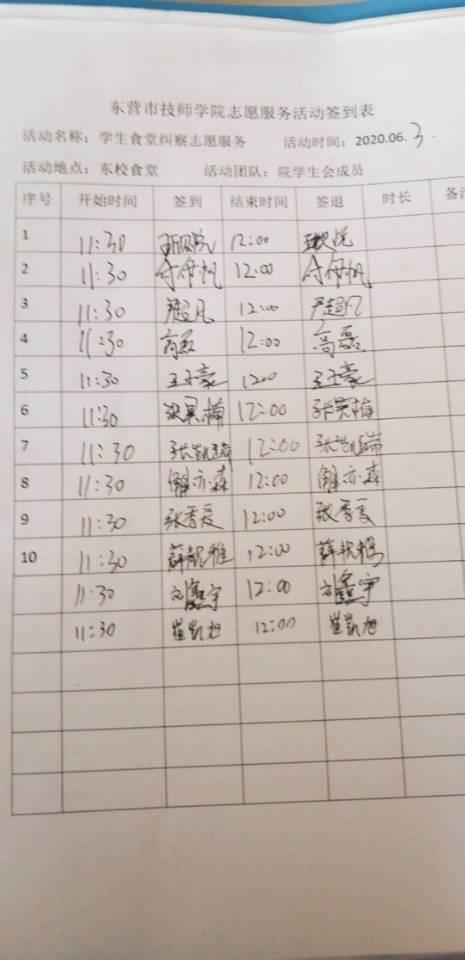 东营市技师学院志愿服务活动签到表
活动名称：学生食堂纠察志愿服务 活动时间：2020.06.3.
活动地点：东校食堂 活动团队：院学生会成员
序号 开始时间 签到 结束时间 签退 时长 备注
1 11:30 12:00
2 11:30 12:00
3 11:30 严超凡 12:00 严超凡
4 11:30 高磊 12:00 高磊
5 11:30 王子豪 1200 王子豪
6 11:30 12:00
7 11:30 张凯瑞 12:00 张凯瑞
8 11:30 亦森 12:00 亦森
9 11:30 张香爱 12:00 张香爱
10 11:30 薛 雅 12:00 薛
11:30 刘鑫宇 12:00 刘鑫宇
11:30 崔凯旭 12:00 崔凯旭